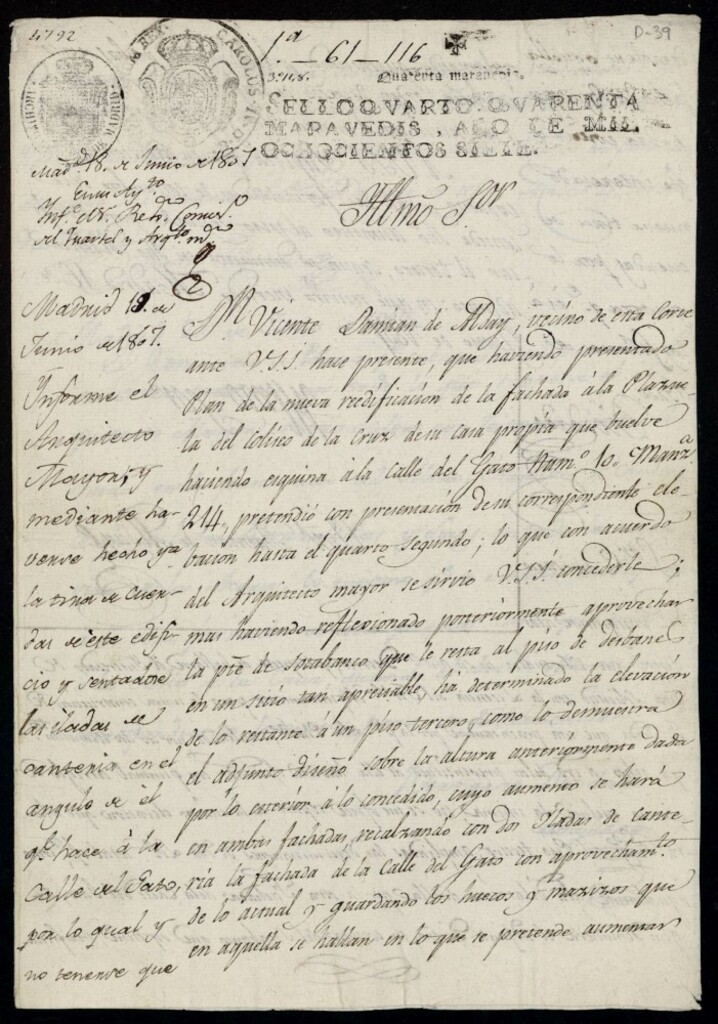 4792
D-39
1.ª - 61 - 116
CAROLUS
Quarenta maravedis.
SELLO QVARTO, QVARENTA
MARAVEDIS, AÑO DE MIL
OCHOCIENTOS SIETE.
Mad.d 18. de Junio de 1807
En su Ay.to
Inf.e el Sr. Reg.r Comis.o
del Quartel y Arq.to m.or
Illmo Sor
Madrid 19. de
Junio de 1807.
Ynforme el
Arquitecto
Mayor; y
mediante ha-
verse hecho ya
la tira de cuer-
das de este edifi-
cio y sentadose
las iladas de
canteria en el
angulo de el
q.e hace à la
Calle del Gato,
por lo qual y
no tenerse que
D.n Vicente Damian de Alday, vecino de esta Corte
ante V.S.I. hace presente, que haviendo presentado
Plan de la nueva reedificacion de la fachada à la Plazue-
la del Coliseo de la Cruz de su casa propia que buelve
haciendo esquina à la calle del Gato Num.o 10. Manz.a
214, pretendió con presentacion de su correspondiente ele-
bacion hasta el quarto segundo; lo que con acuerdo
del Arquitecto mayor se sirvio V.S.I. concederle;
mas haviendo reflexionado posteriormente aprovechar
la p.te de sotabanco que le resta al piso de desbanes
en un sitio tan apreciable, ha determinado la elevación
de lo restante à un piso tercero, como lo demuestra
el adjunto diseño sobre la altura anteriormente dada
por lo exterior à lo concedido, cuyo aumento se hará
en ambas fachadas, recalzando con dos Yladas de cante-
ría la fachada de la Calle del Gato con aprovecham.to
de lo actual y guardando los huecos y mazizos que
en aquella se hallan en lo que se pretende aumentar